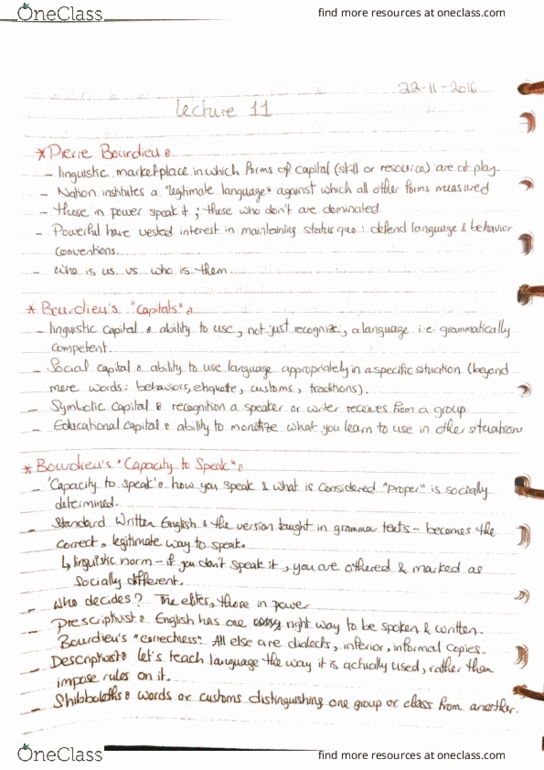 OneClass find more resources at oneclass.com
22-11-2016
Lecture 11
*Pierre Bourdieu:
- linguistic marketplace in which forms of capital (skill or resource) are at play.
- Nation institutes a "legitimate language" against which all other forms measured
- those in power speak it; those who don't are dominated.
- Powerful have vested interest in maintaining status quo: defend language & behavior
conventions.
- Who is us vs who is them.
* Bourdieu's "Capitals":
- linguistic capital: ability to use, not just recognize, a language i.e. grammatically
competent.
- Social capital: ability to use language appropriately in a specific situation (beyond
mere words: behaviors, etiquette, customs, traditions).
- Symbolic capital: recognition a speaker or writer receives from a group.
- Educational capital: ability to monetize what you learn to use in other situations
* Bourdieu's "Capacity to Speak":
- 'Capacity to speak': how you speak & what is considered "proper" is socially
determined.
- Standard Written English: the version taught in grammar texts - becomes the
correct, legitimate way to speak.
↳ linguistic norm - if you don't speak it, you are othered & marked as
socially different.
- Who decides? The elites, those in power
- Prescriptivist: English has one right way to be spoken & written.
Bourdieu's "correctness". All else are dialects, inferior, informal copies.
- Descriptivist: let's teach language the way it is actually used, rather than
impose rules on it.
- Shibboleths: words or customs distinguishing one group or class from another.
OneClass find more resources at oneclass.com